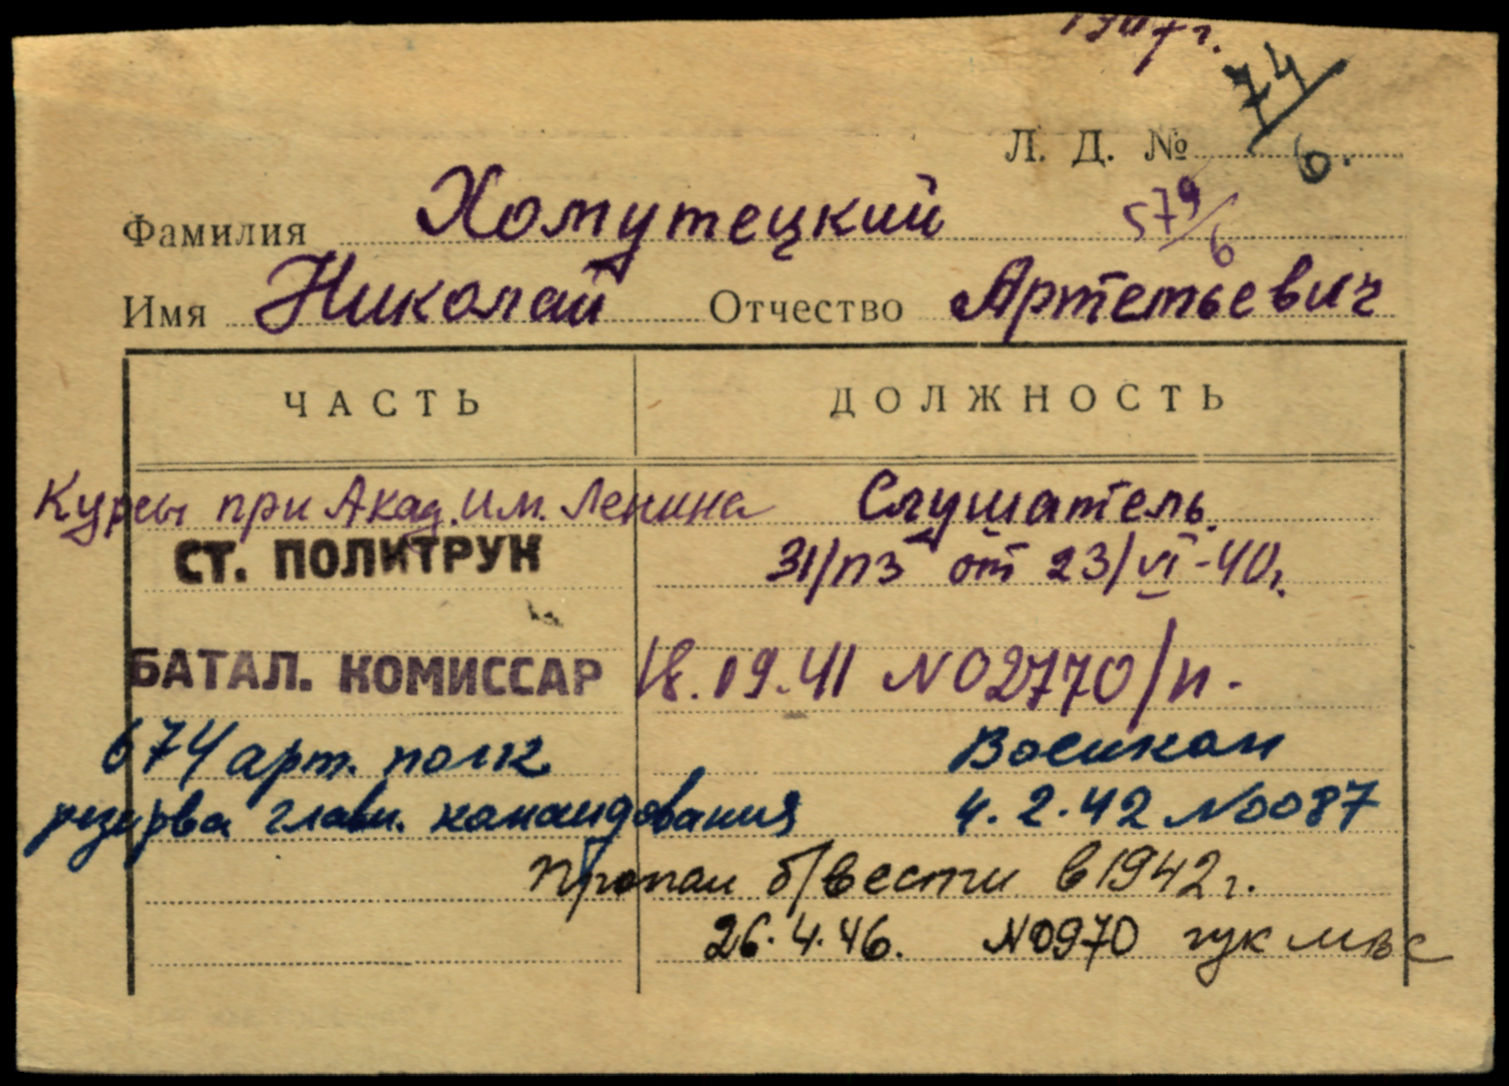 1907 г.
74/6.
Л. Д. №
579/6
Фамилия Хомутецкий
Имя Николай Отчество Артемьевич
ЧАСТЬ ДОЛЖНОСТЬ
Курсы при Акад. им. Ленина Слушатель.
СТ. ПОЛИТРУК 31/пз от 23/VI-40г.
БАТАЛ. КОМИССАР 18.09.41 №02770/п.
674 арт. полк Военком
резерва главн. командования 4.2.42 №0087
Пропал б/вести в 1942 г.
26.4.46. №0970 гук мвс